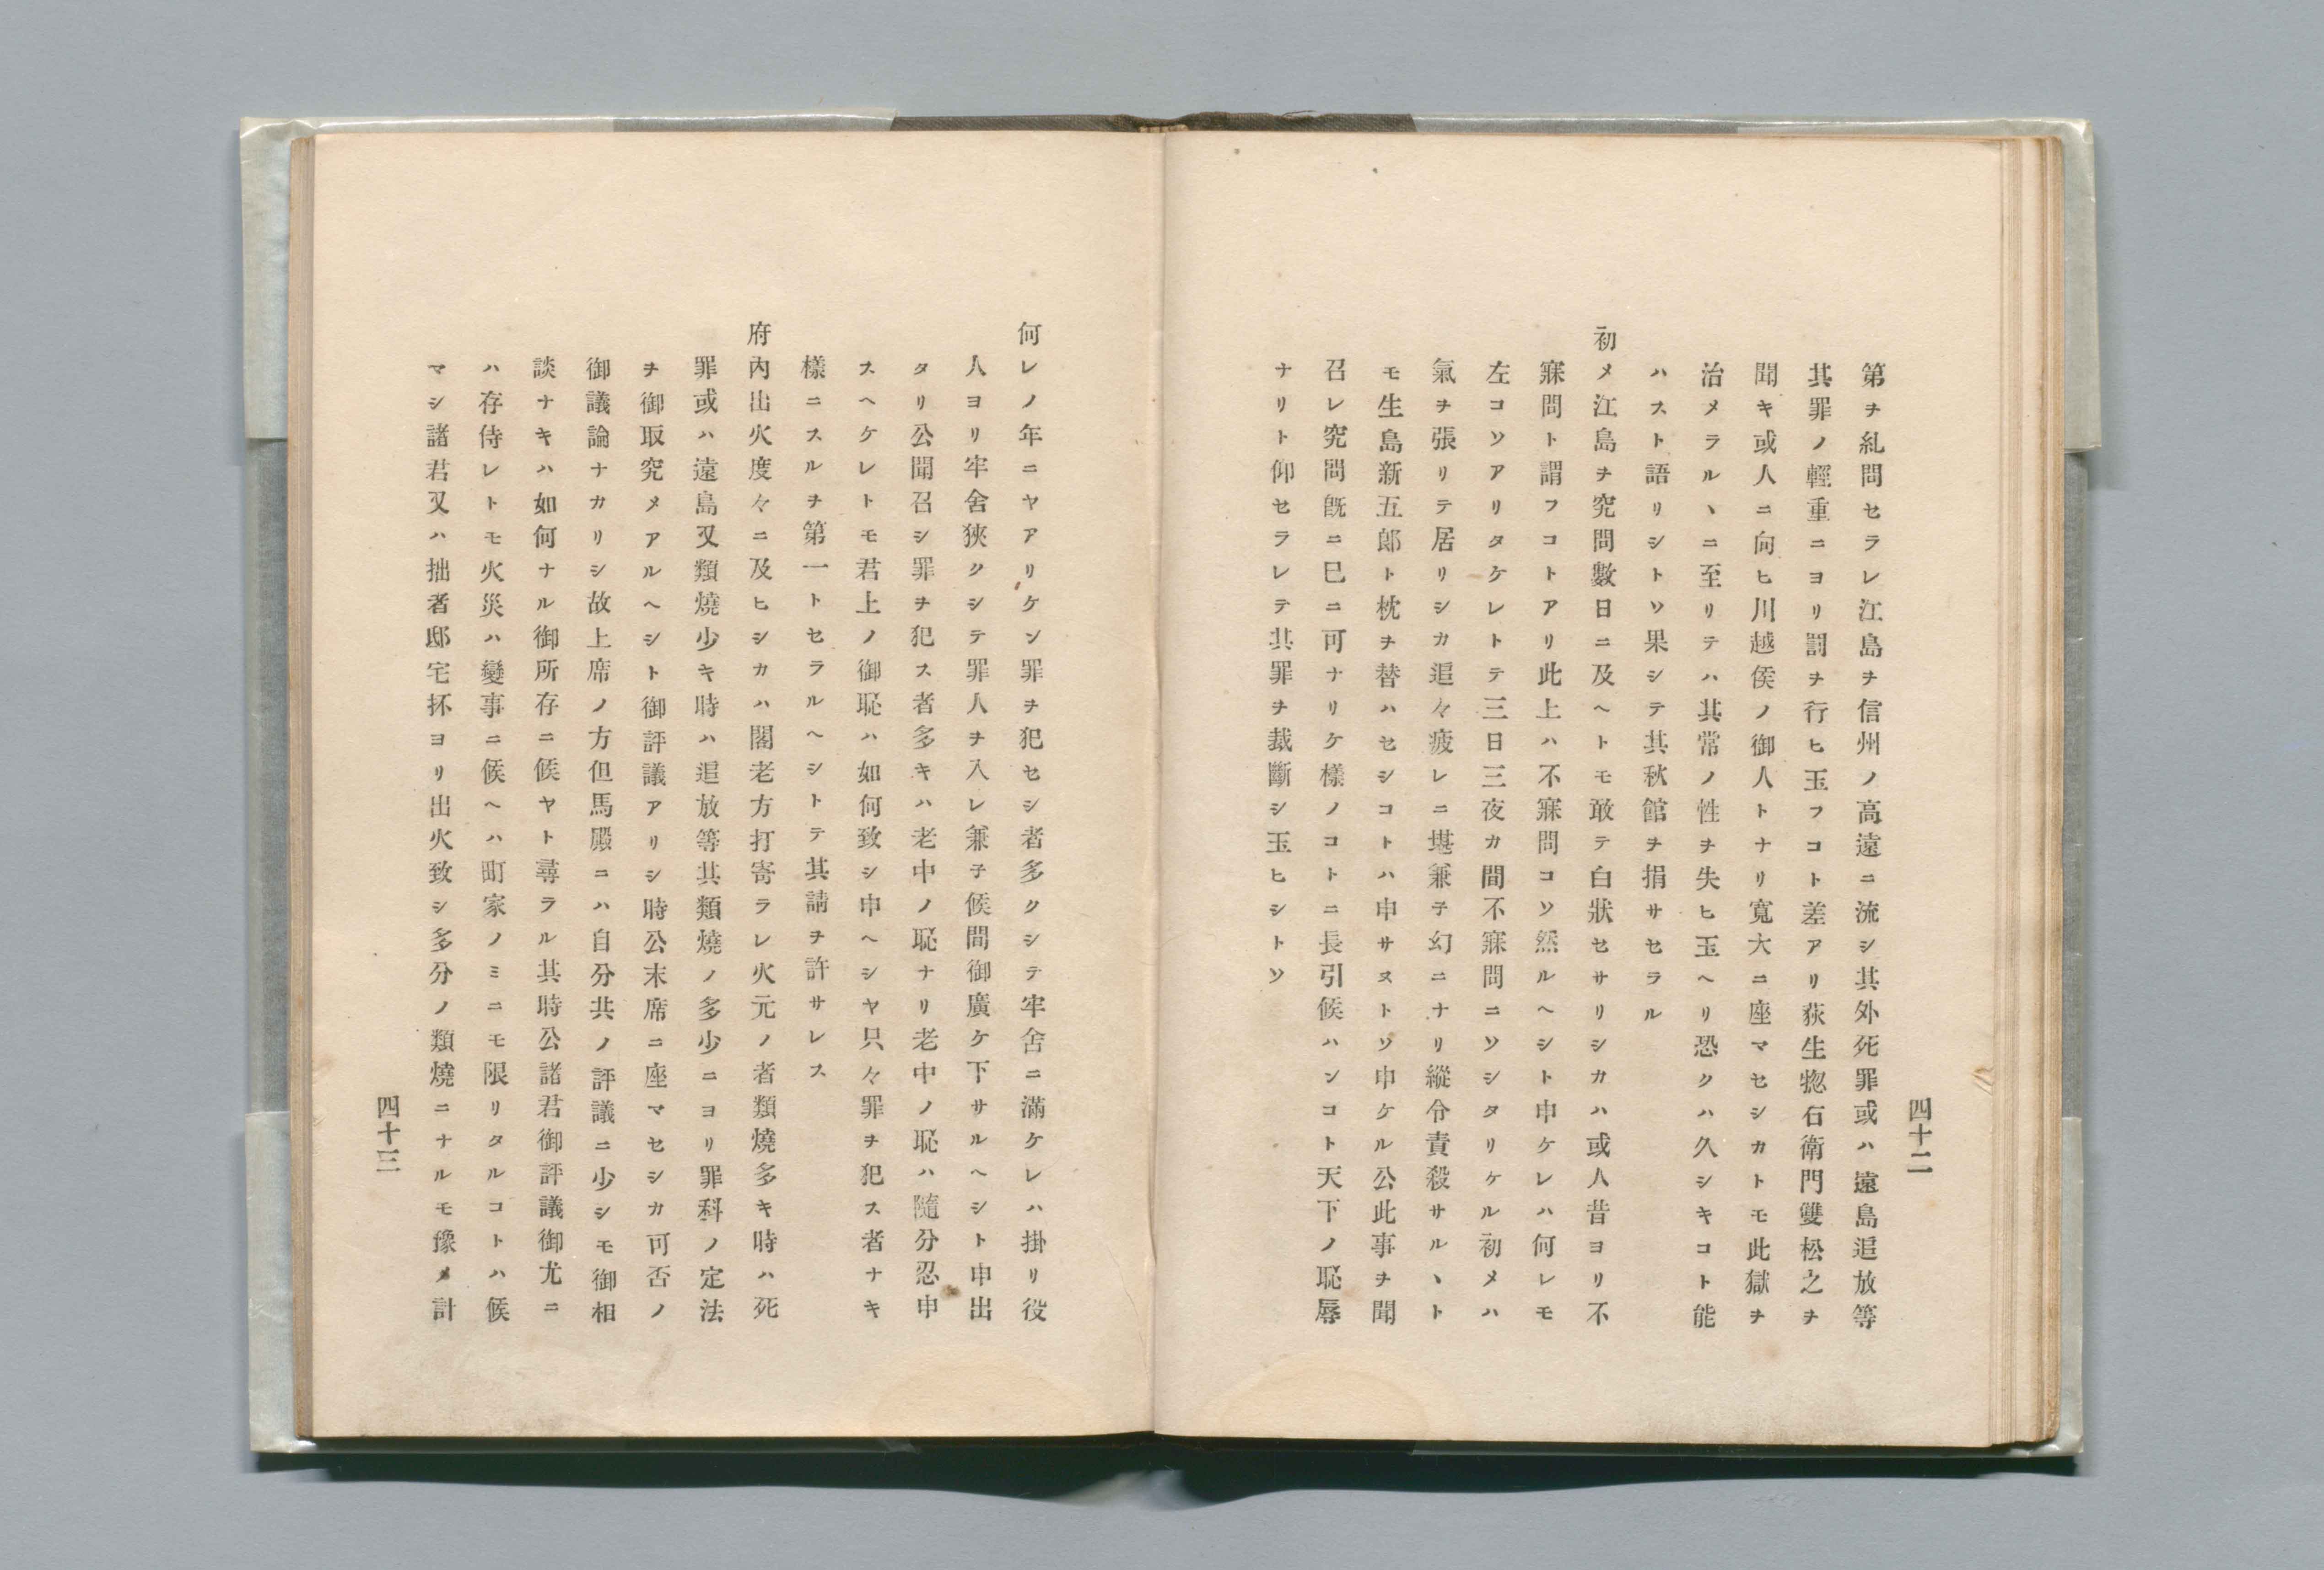 四十二
第ヲ糺問セラレ江島ヲ信州ノ高遠ニ流シ其外死罪或ハ遠島追放等
其罪ノ輕重ニヨリ罰ヲ行ヒ玉フコト差アリ荻生惣右衛門雙松之ヲ
聞キ或人ニ向ヒ川越侯ノ御人トナリ寬大ニ座マセシカトモ此獄ヲ
治メラルヽニ至リテハ其常ノ性ヲ失ヒ玉ヘリ恐クハ久シキコト能
ハスト語リシトソ果シテ其秋館ヲ捐サセラル
初メ江島ヲ究問數日ニ及ヘトモ敢テ白狀セサリシカハ或人昔ヨリ不
寐問ト謂フコトアリ此上ハ不寐問コソ然ルヘシト申ケレハ何レモ
左コソアリタケレトテ三日三夜カ間不寐問ニソシタリケル初メハ
氣ヲ張リテ居リシカ追々疲レニ堪兼子幻ニナリ縱令責殺サルヽト
モ生島新五郞ト枕ヲ替ハセシコトハ申サヌトゾ申ケル公此事ヲ聞
召レ究問旣ニ巳ニ可ナリケ樣ノコトニ長引候ハンコト天下ノ恥辱
ナリト仰セラレテ其罪ヲ裁斷シ玉ヒシトソ
何レノ年ニヤアリケン罪ヲ犯セシ者多クシテ牢舍ニ滿ケレハ掛リ役
人ヨリ牢舍狹クシテ罪人ヲ入レ兼子候間御廣ケ下サルヘシト申出
タリ公聞召シ罪ヲ犯ス者多キハ老中ノ恥ナリ老中ノ恥ハ隨分忍申
スヘケレトモ君上ノ御恥ハ如何致シ申ヘシヤ只々罪ヲ犯ス者ナキ
樣ニスルヲ第一トセラルヘシトテ其請ヲ許サレス
府內出火度々ニ及ヒシカハ閣老方打寄ラレ火元ノ者類燒多キ時ハ死
罪或ハ遠島又類燒少キ時ハ追放等其類燒ノ多少ニヨリ罪科ノ定法
ヲ御取究メアルヘシト御評議アリシ時公末席ニ座マセシカ可否ノ
御議論ナカリシ故上席ノ方但馬殿ニハ自分共ノ評議ニ少シモ御相
談ナキハ如何ナル御所存ニ候ヤト尋ラル其時公諸君御評議御尤ニ
ハ存侍レトモ火災ハ變事ニ候ヘハ町家ノミニモ限リタルコトハ候
マシ諸君又ハ拙者邸宅抔ヨリ出火致シ多分ノ類燒ニナルモ豫メ計
四十三